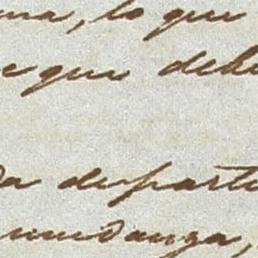 ma, lo que
e que debe
da departe
mudanza,